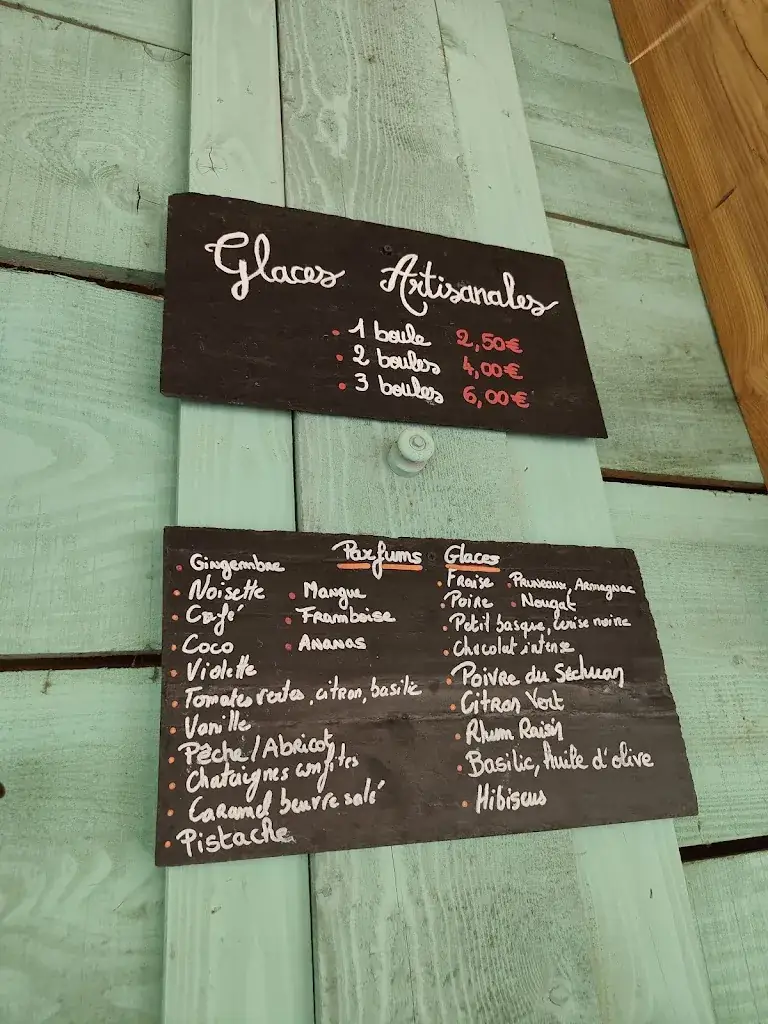 Glaces Artisanales
• 1 boule 2,50€
• 2 boules 4,00€
• 3 boules 6,00€
Parfums Glaces
• Gingembre
• Noisette
• Café
• Coco
• Violette
• Mangue
• Framboise
• Ananas
• Tomates vertes, citron, basilic
• Vanille
• Pêche/Abricot
• Chataignes confites
• Caramel beurre salé
• Pistache
• Fraise • Pruneaux, Armagnac
• Poire • Nougat
• Petit basque, cerise noire
• Chocolat intense
• Poivre du Sechuan
• Citron Vert
• Rhum Raisin
• Basilic, huile d'olive
• Hibiscus